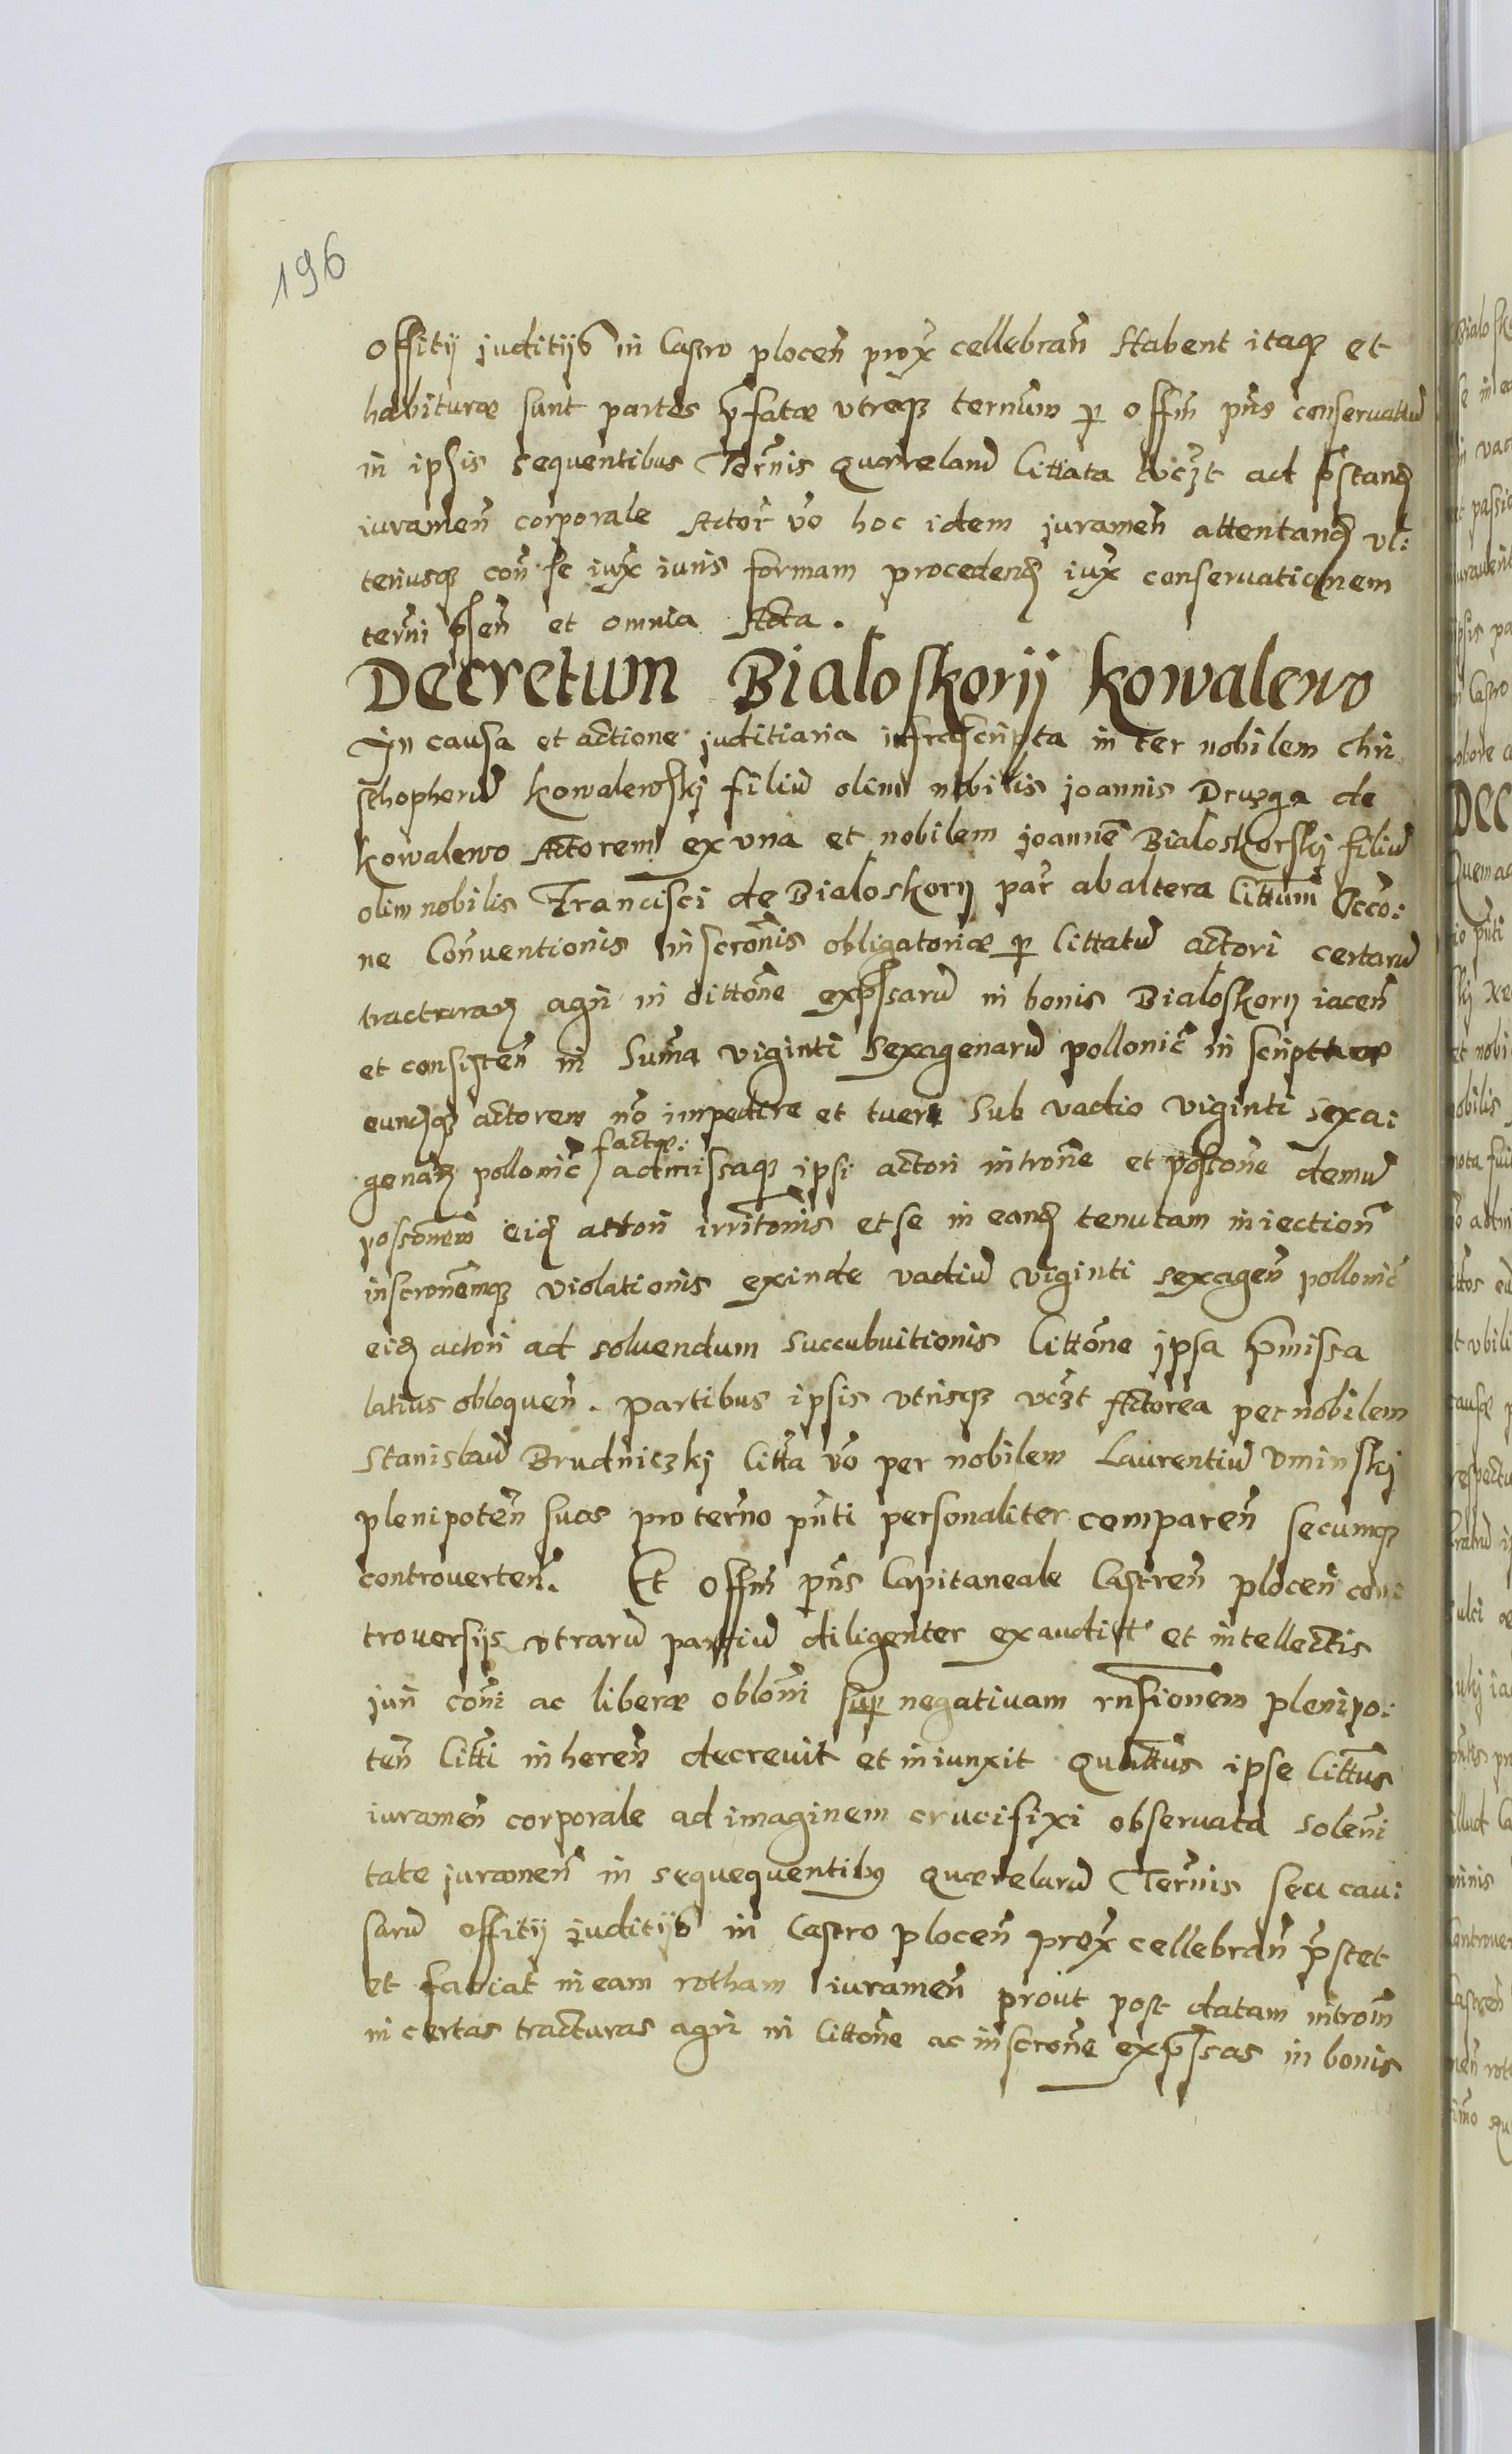 196
Offitij juditijs in Castro plocen̄ prox̄ cellebran̄ Habent itaq₃ et
habituræ sunt partes p̄fatæ vtreq₃ termin̄ ꝑ offm̄ pn̄s conservatū
in ipsis sequentibus Ter̄nis Quærelarū Cittata vcꝫt ad p̄standꝭ
iuramen̄ corporale Actor v̄o hoc idem juramen̄ attentandꝭ vl:
teriusq₃ con̄ se iux̄ iuris formam procedendꝭ iux̄ conservationem
ter̄ni p̄sen̄ et omnia Acta.
Decretum Bialoskorij Kowalewo
Jn causa et actione juditiaria infrascripta inter nobilem Chri
sthopherū Kowalewskj filiū olim nobilis joannis Druzga de
Kowalewo Actorem ex vna et nobilem joannē Bialoskorskj filiū
olim nobilis Francisci de Bialoskorij par̄ ab altera Cittum̄ Occō:
ne Conventionis inscrōnis obligatoriæ ꝑ Cittatū actori certarū
tracturarꝭ agri in cittōne exp̄ssarū in bonis Bialoskorij iacen̄
et consisten̄ in Suma viginti Sexagenarū pollonic̄ in script
eundꝭq₃ actorem nō impedire et tueri sub vadio viginti sexa:
factæ:
genarꝭ pollonic̄ admissaq₃ ipsi actori intrōne et possōne demū
possōnem eidꝭ actori irritōnis et se in eandꝭ tenutam iniection̄
inscrōnemq₃ violationis exinde vadiū viginti sexagen̄ pollonic̄
eidꝭ actori ad soluendum succubuitionis Cittōne ipsa p̄missa
latius obloquen̄. Partibus ipsis vtrisq₃ vcꝫt Actorea per nobilem
Stanislaū Brudniczkj Citta v̄o per nobilem Laurentiū Vminskj
plenipoten̄ suos pro ter̄no pn̄ti personaliter comparen̄ secumq₃
controuerten̄. Et Offm̄ pn̄s Capitaneale Castren̄ plocen̄ con:
trouersijs vtrarū partiū diligenter exaudit̄ et intellectis
juri com̄i ac liberæ oblōni sup̱ negatiuam rn̄sionem plenipo:
ten̄ Citti inheren̄ decreuit et iniunxit Quattus ipse Cittus
iuramen̄ corporale ad imaginem crucifixi observata solen̄i
tate juramen̄ in sequequentibꝰ Quærelarū Ter̄nis seu cau:
sarū offitij juditijs in Castro plocen̄ prox̄ cellebran̄ p̄stet
et faciat in eam rotham iuramen̄ prout post datam intrōm̄
in certas tracturas agri in Cittōne ac inscrōne exp̄ssas in bonis